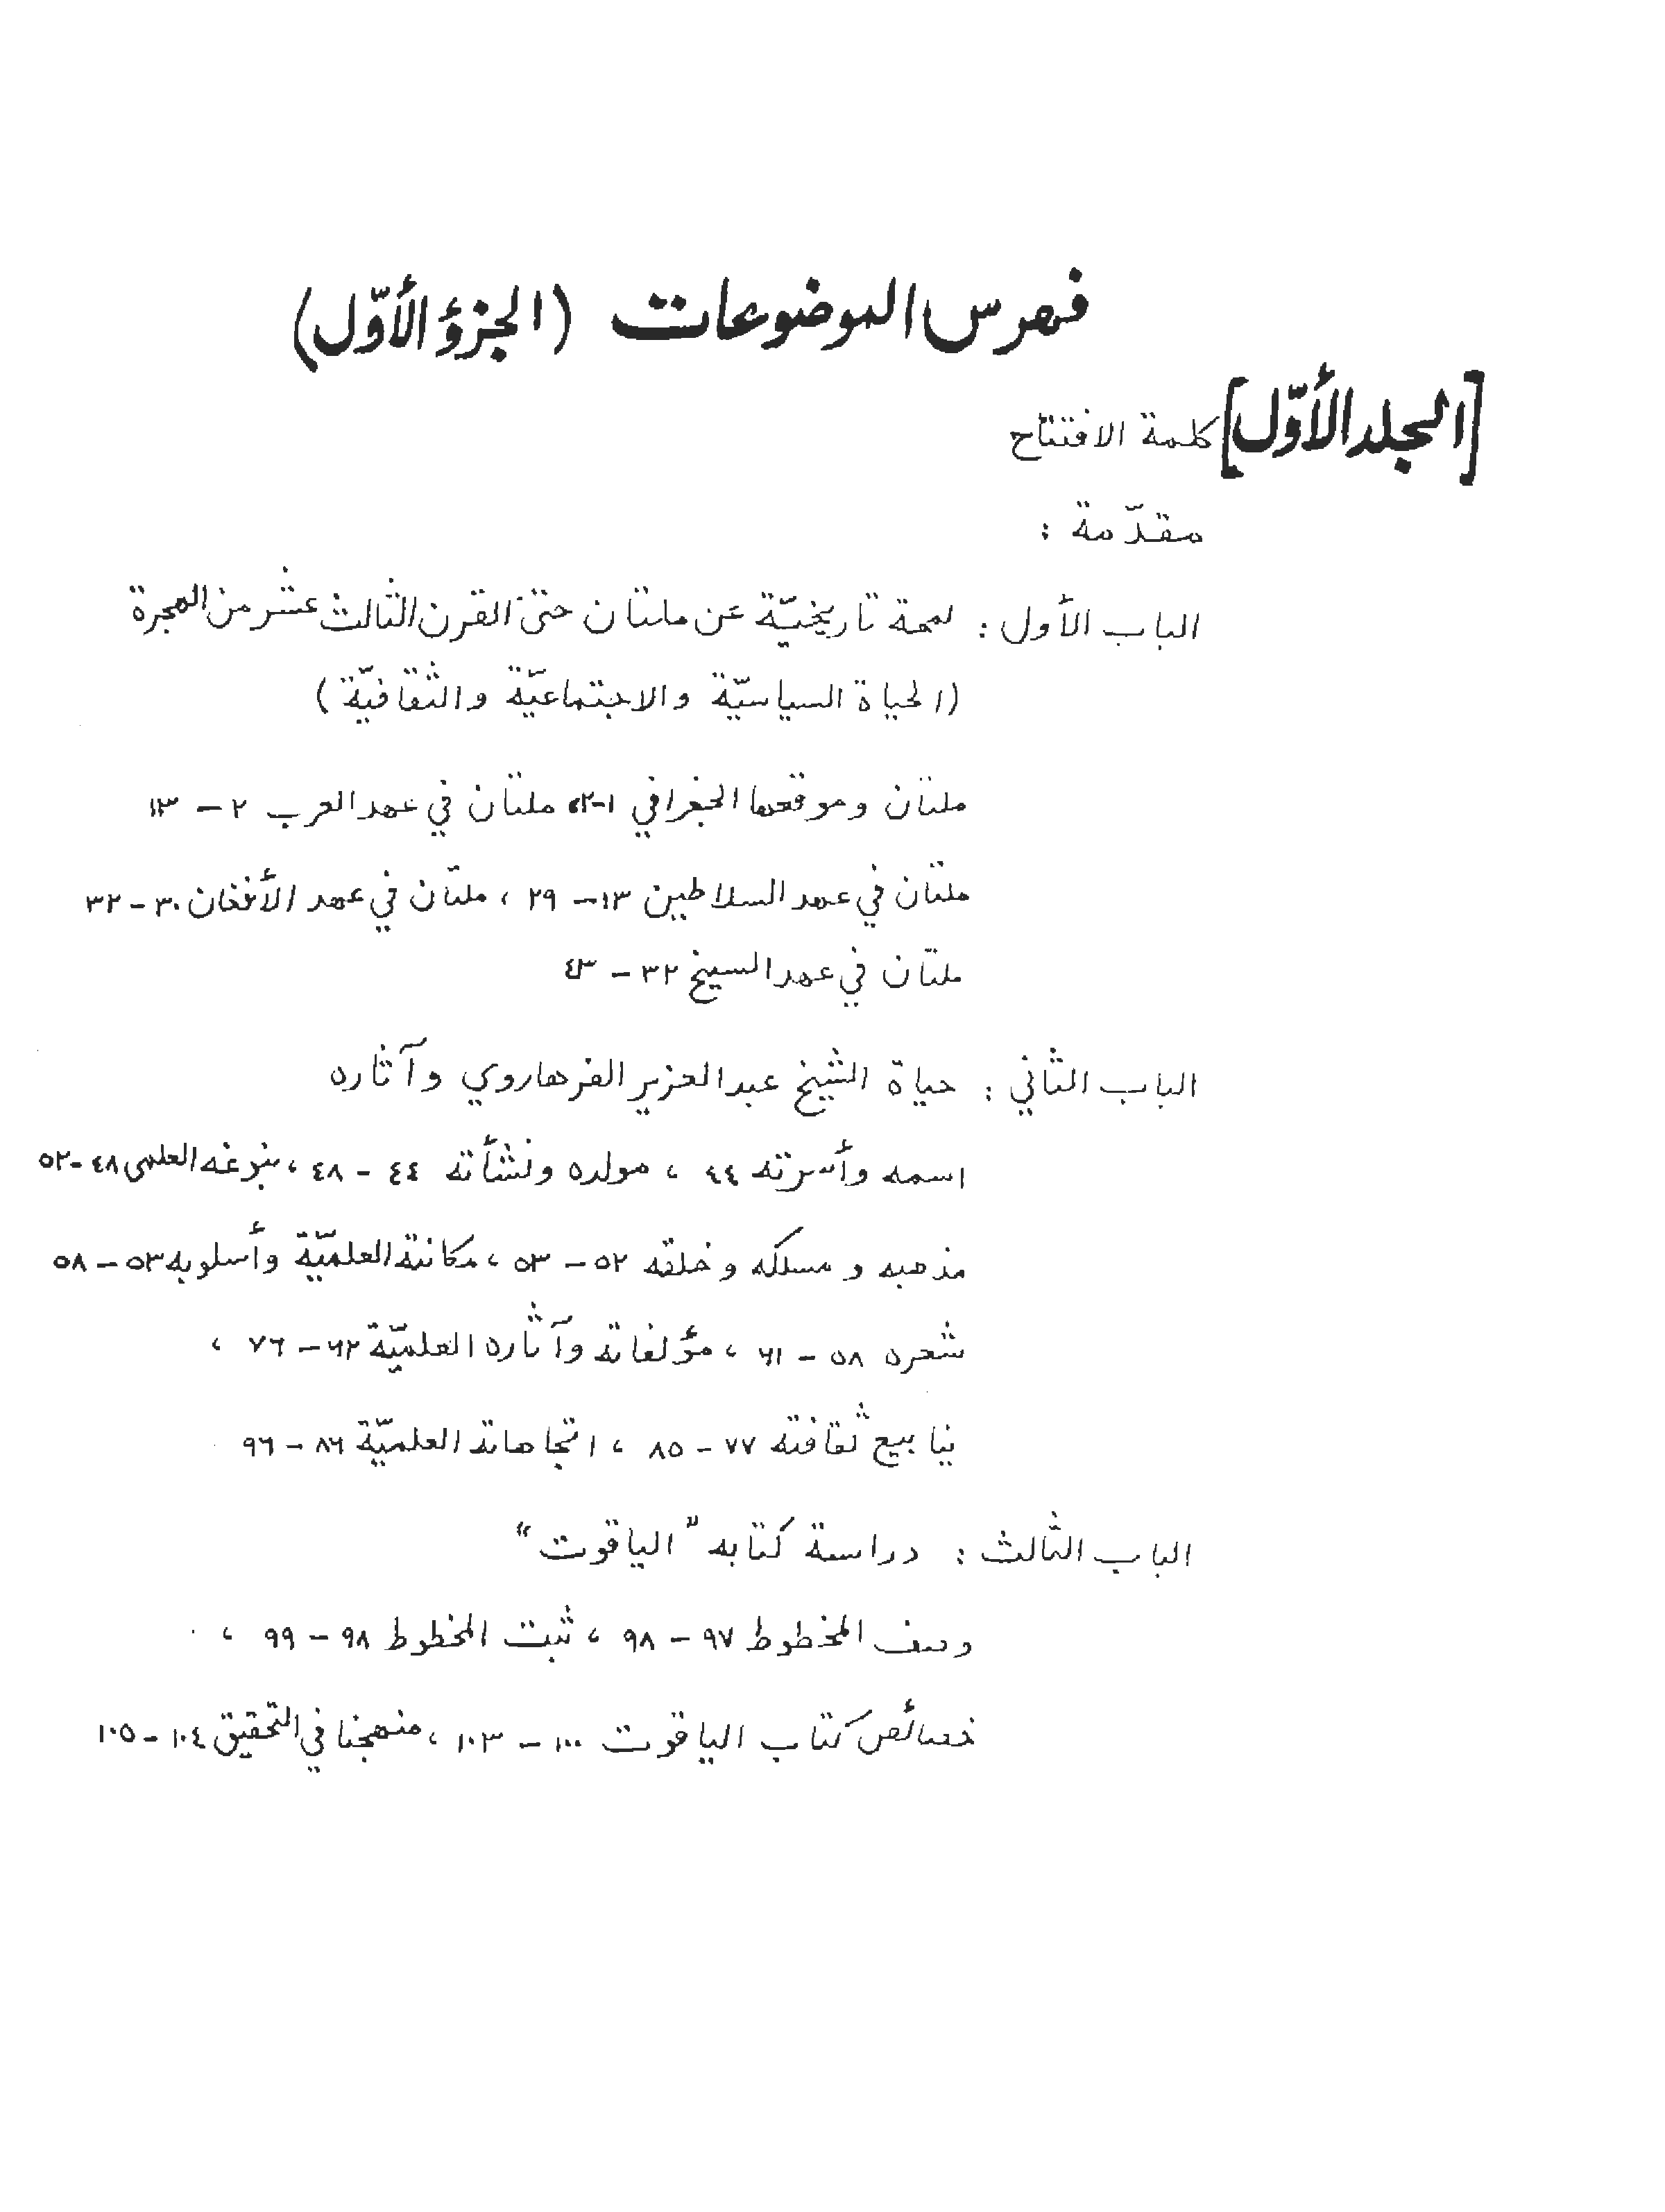 فهرس الموضوعات (الجزؤ الأوّل)
[المجلد الأوّل] كلمة الافتتاح
مقدّمة :
الباب الأول : لمحة تاريخيّة عن ملتان حتىٰ القرن الثالث عشر من الهجرة
(الحياة السياسيّة والاجتماعيّة والثقافيّة)
ملتان وموقعها الجغرافي ١-٢، ملتان في عهد العرب ٢ – ١٣
ملتان في عهد السلاطين ١٣ – ٢٩ ، ملتان في عهد الأفغان ٣٠ – ٣٢
ملتان في عهد السيخ ٣٢ – ٤٣
الباب الثاني : حياة الشيخ عبد العزيز الفرهاروي وآثاره
اسمه وأسرته ٤٤ ، مولده ونشأته ٤٤ – ٤٨ ، نبوغه العلمى ٤٨ – ٥٢
مذهبه و مسلكه وخلقه ٥٢ – ٥٣ ، مكانته العلميّة وأسلوبه ٥٣ – ٥٨
شعره ٥٨ – ٦١ ، مؤلفاته وآثاره العلميّة ٦٢ – ٧٦ ،
ينابيع ثقافته ٧٧ – ٨٥ ، اتجاهاته العلميّة ٨٦ – ٩٦
الباب الثالث : دراسة كتابه "الياقوت"
وصف المخطوط ٩٧ – ٩٨ ، ثبت المخطوط ٩٨ – ٩٩ ،
خصائص كتاب الياقوت ١٠٠ – ١٠٣ ، منهجنا في التحقيق ١٠٤ – ١٠٥